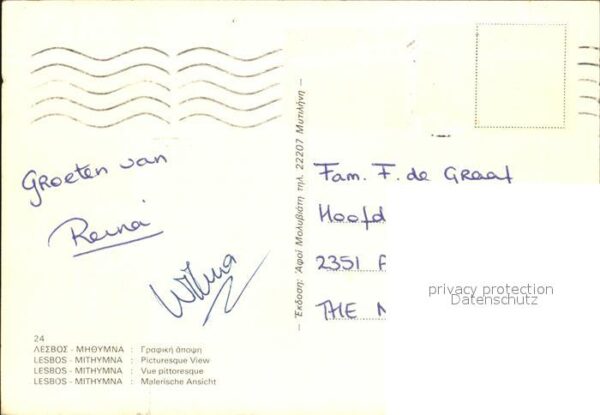 Groeten van
Reina
Wilma
24
ΛΕΣΒΟΣ - ΜΗΘΥΜΝΑ : Γραφική άποψη
LESBOS - MITHYMNA : Picturesque View
LESBOS - MITHYMNA : Vue pittoresque
LESBOS - MITHYMNA : Malerische Ansicht
— Έκδοση: Ἀφοί Μολυβιάτη τηλ. 22207 Μυτιλήνη —
Fam. F. de Graaf
Hoofd
2351
THE
privacy protection
Datenschutz